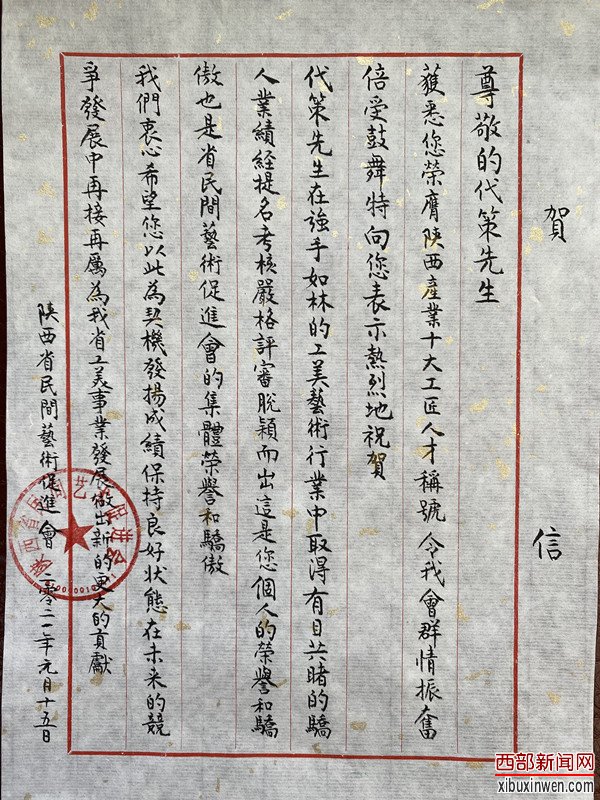 賀信
尊敬的代策先生
獲悉您榮膺陝西産業十大工匠人才稱號令我會群情振奮
倍受鼓舞特向您表示熱烈地祝賀
代策先生在強手如林的工美藝術行業中取得有目共睹的驕
人業績經提名考核嚴格評審脫穎而出這是您個人的榮譽和驕
傲也是省民間藝術促進會的集體榮譽和驕傲
我們衷心希望您以此為契機發揚成績保持良好狀態在未来的競
爭發展中再接再厲為我省工美事業發展做出新的更大的貢獻
陝西省民間藝術促進會
二零二一年元月十五日
西部新闻网
xibuxinwen.com